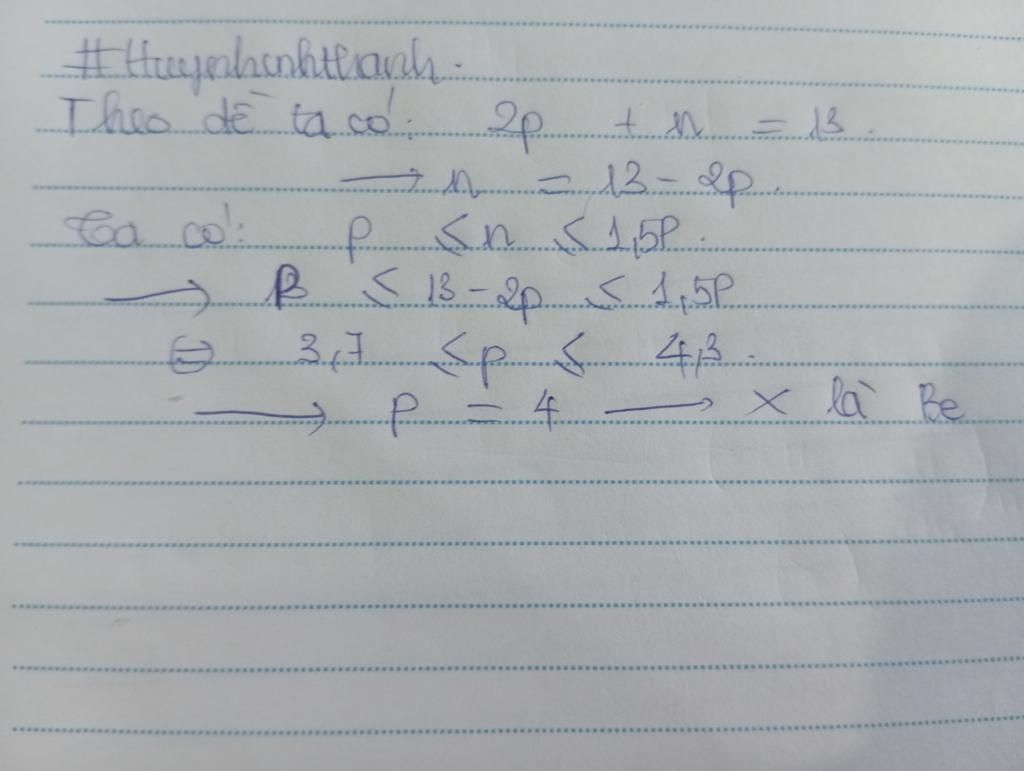 #Huynhanhthanh.
Theo đề ta có: 2p + n = 13.
→ n = 13 - 2p.
Ta có: p ≤ n ≤ 1,5P.
→ P ≤ 13 - 2p ≤ 1,5P
⇔ 3,7 ≤ p ≤ 4,3.
→ p = 4 → X là Be